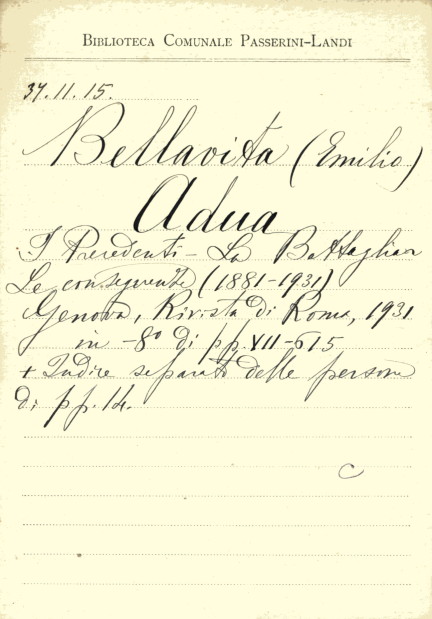 BIBLIOTECA COMUNALE PASSERINI-LANDI
37.11.15.
Bellavita (Emilio)
Adua
I Precedenti - La Battaglia
Le conseguente (1881-1931)
Genova, Rivista di Roma, 1931
in -8º di pp. XII-615
+ Indice separato delle persone
di pp. 14.
C